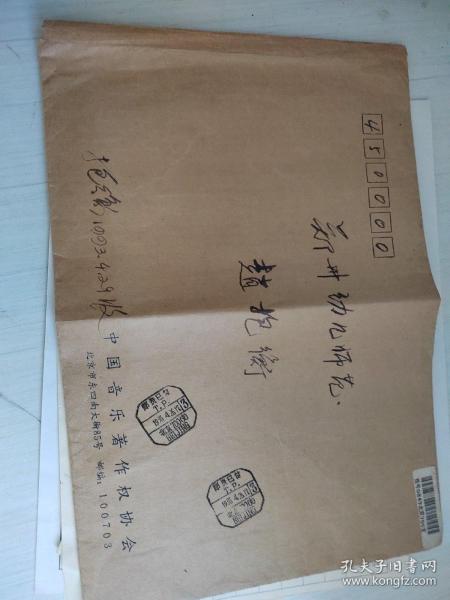 450000
郑州幼儿师范、
赵抱衡
抱衡1993.4.29收
中国音乐著作权协会
北京市东四南大街85号 邮编:100703
邮资已付
T.P.
邮资已付
T.P.
孔夫子旧书网
www.kongfz.com